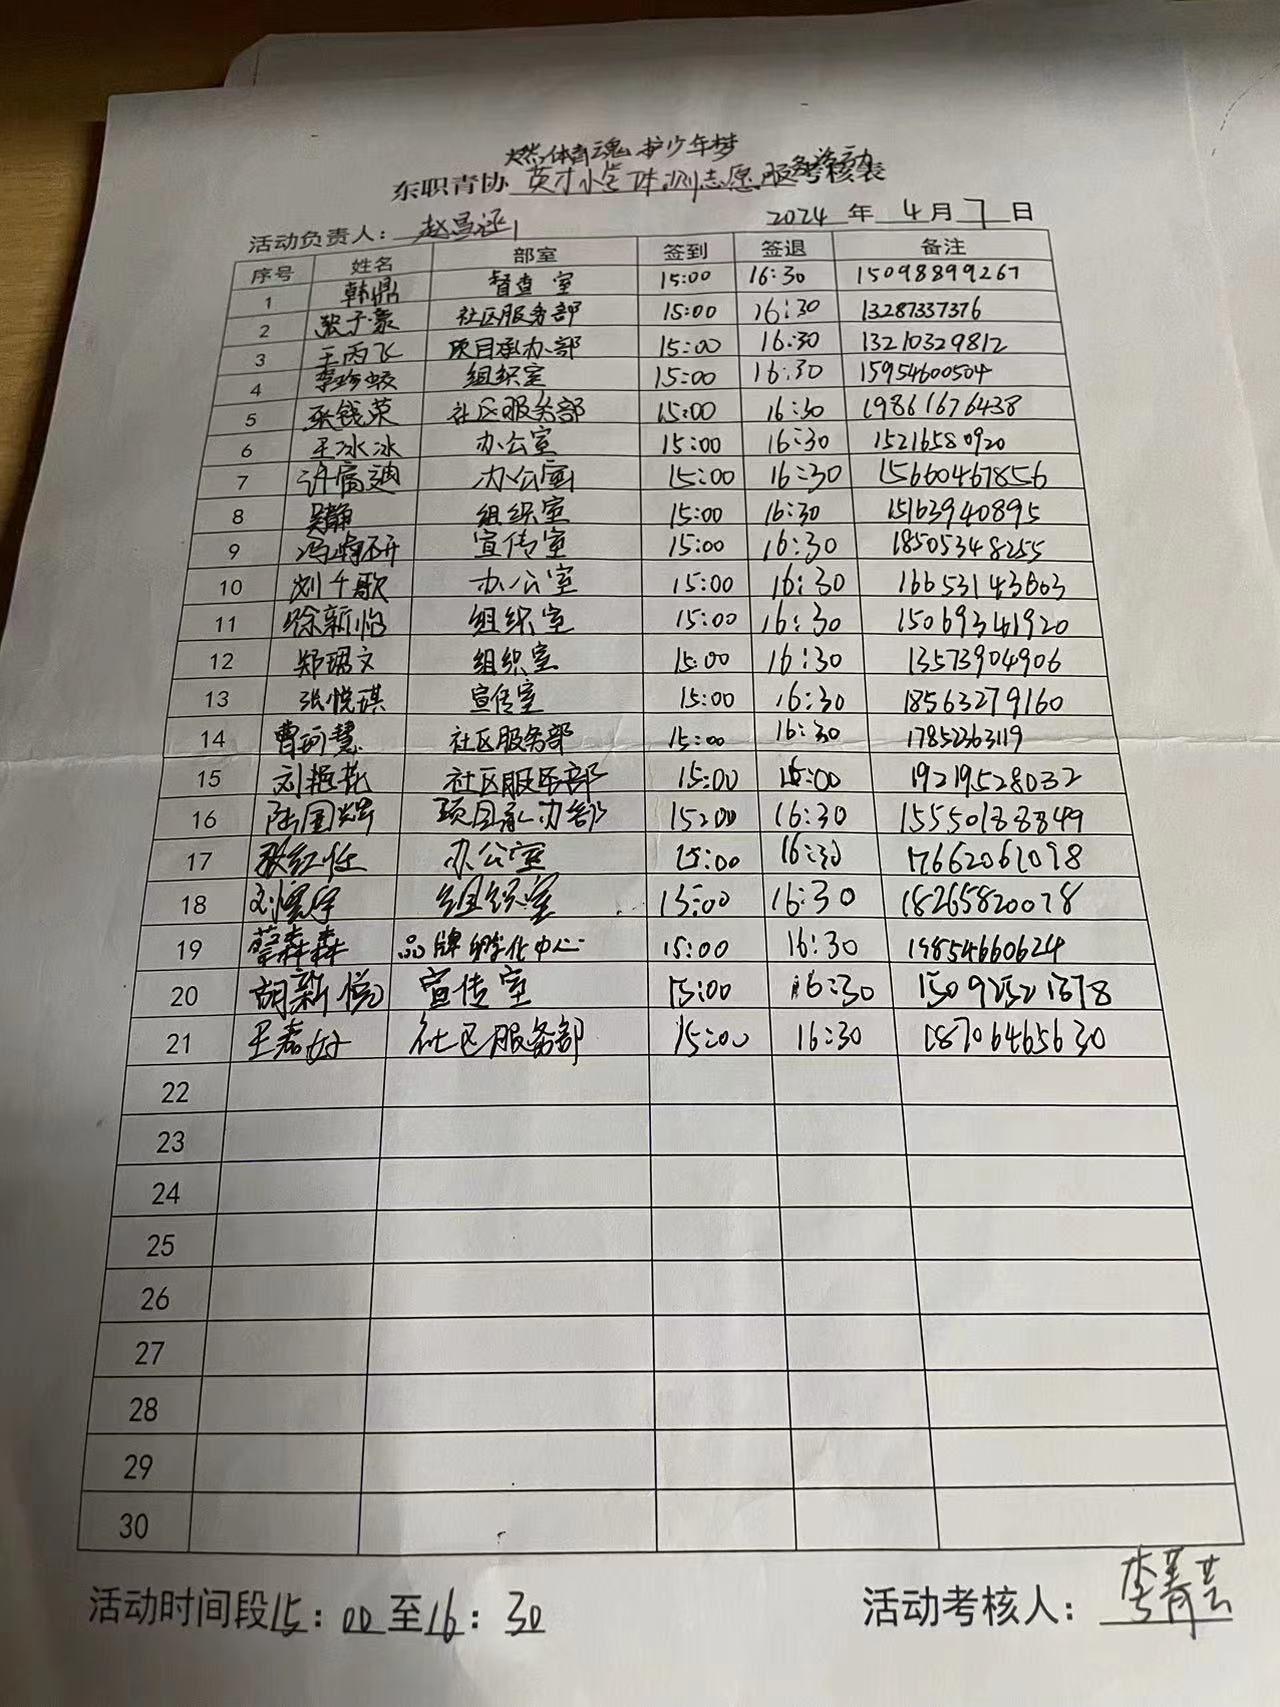 燃体育魂 护少年梦
东职青协 英才小学体测志愿服务活动考核表
活动负责人： 2024 年 4 月 7 日
序号 姓名 部室 签到 签退 备注
1 韩鼎 督查室 15:00 16:30 15098899267
2 张子豪 社区服务部 15:00 16:30 13287337376
3 王丙飞 项目承办部 15:00 16:30 13210329812
4 组织室 15:00 16:30 15954600504
5 张钱荣 社区服务部 15:00 16:30 19861676438
6 王冰冰 办公室 15:00 16:30 15216580920
7 办公室 15:00 16:30 15660467856
8 吴静 组织室 15:00 16:30 15163940895
9 宣传室 15:00 16:30 18505348255
10 刘千歌 办公室 15:00 16:30 16653143603
11 徐新怡 组织室 15:00 16:30 15069341920
12 郑珺文 组织室 15:00 16:30 13573904906
13 张悦琪 宣传室 15:00 16:30 18563279160
14 曹珂慧 社区服务部 15:00 16:30 17852363119
15 刘艳花 社区服务部 15:00 19219528032
16 陆国辉 项目承办部 15:00 16:30 15550188849
17 张红任 办公室 15:00 16:30 17662061098
18 组织室 15:00 16:30 18265820078
19 蔡森森 品牌孵化中心 15:00 16:30 19854660624
20 胡新悦 宣传室 15:00 16:30 15092521378
21 社区服务部 15:00 16:30 18706465630
22
23
24
25
26
27
28
29
30
活动时间段15：00至16：30 活动考核人：李菁芸